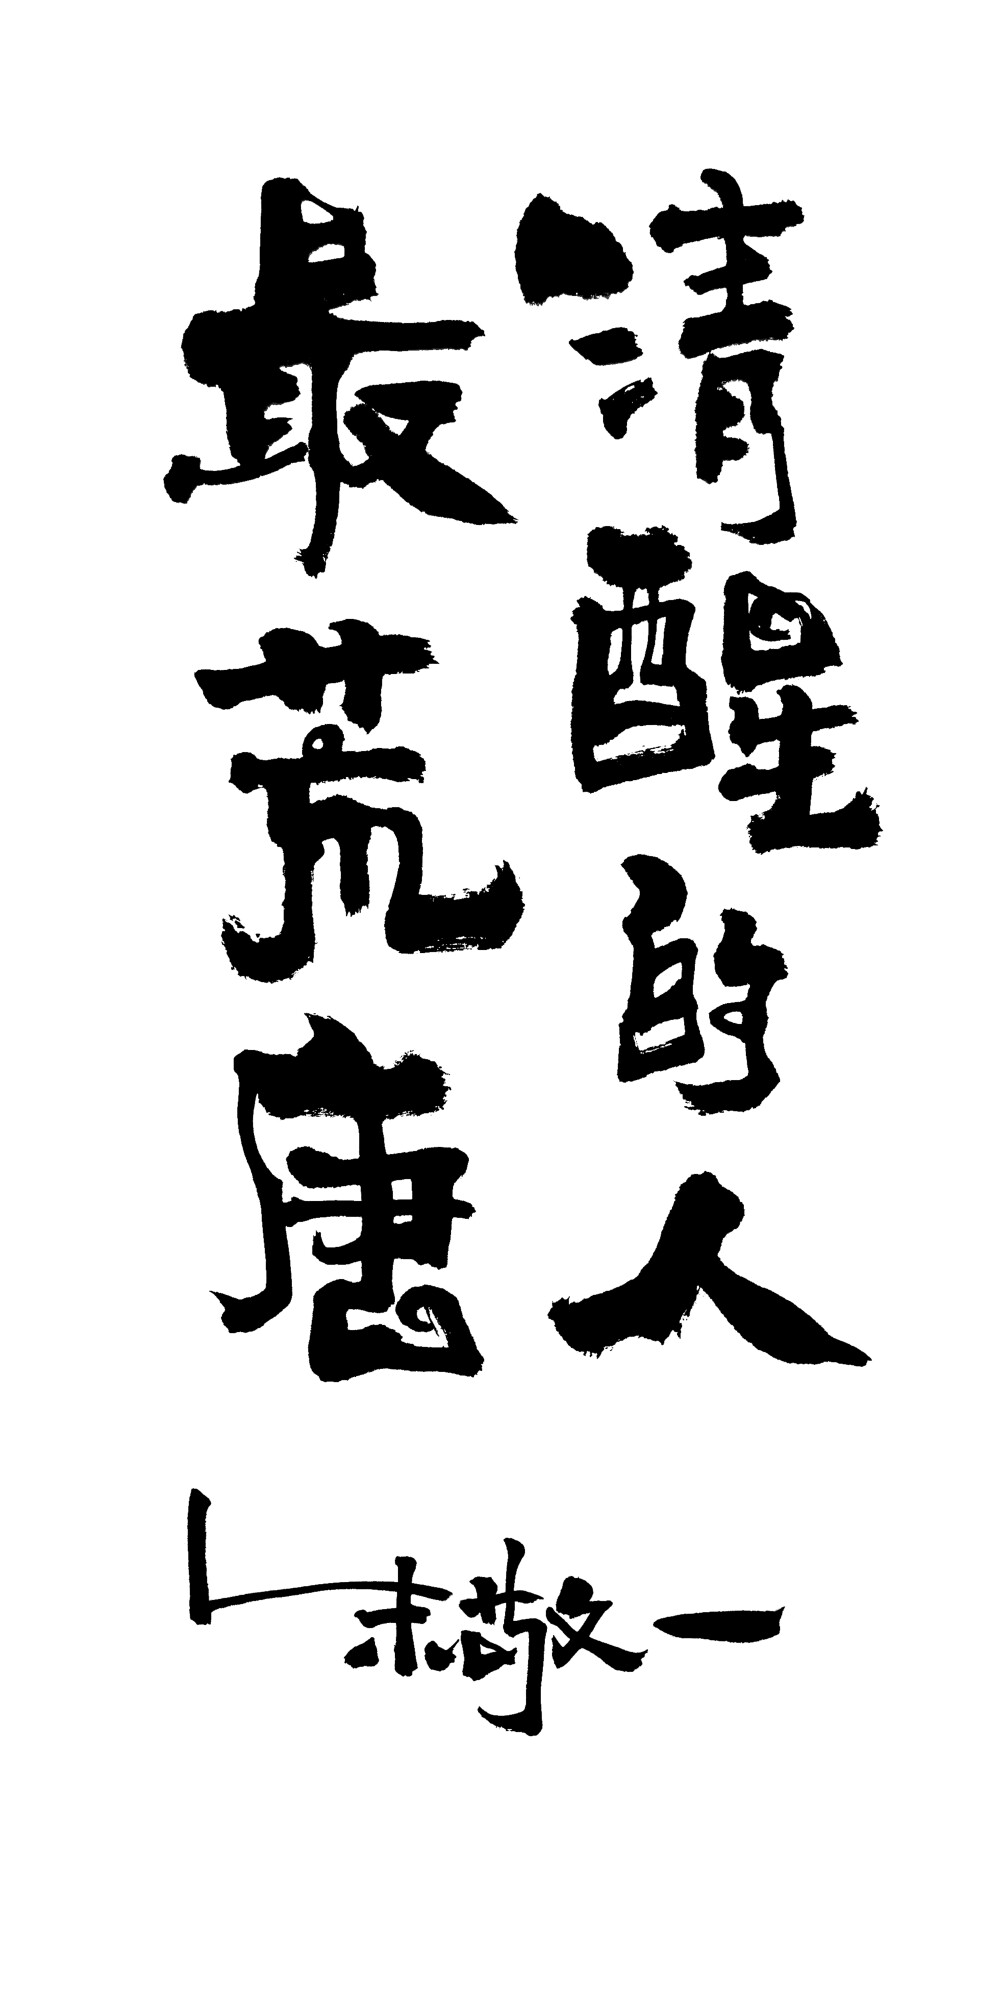 清醒的人
最荒唐
朱敬一